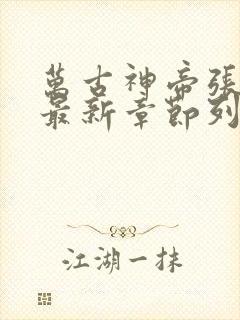 萬古神帝張
最新章節列
江湖一抹